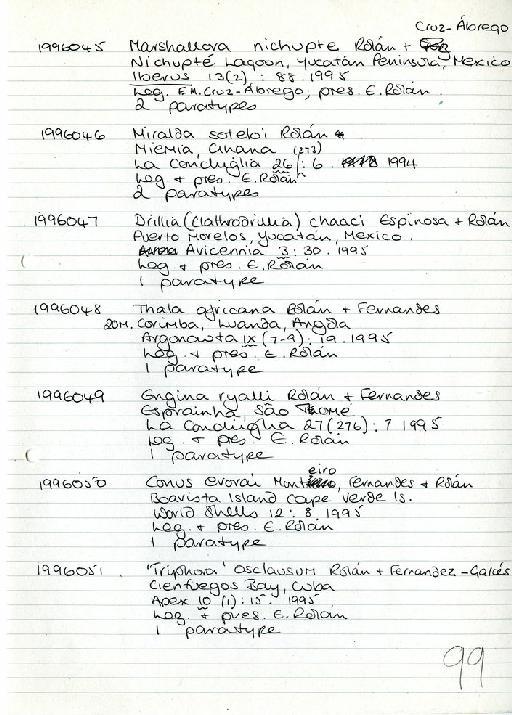 Cruz-Ábrego
1996045 Marshallora nichupte Rolán +
Nichupté Lagoon, Yucatán Peninsula, Mexico
Iberus 13(2): 88. 1995
Leg. E.M. Cruz-Ábrego, pres. E. Rolán.
2 paratypes
1996046 Miralda soteloi Rolán
Miemia, Ghana (277)
La Conchiglia 26: 6. 1994
Leg + pres. E. Rolán
2 paratypes
1996047 Drillia (Clathrodrillia) chaaci Espinosa + Rolán
Puerto Morelos, Yucatán, Mexico.
Avicennia 3: 30. 1995
Leg + pres. E. Rolán
1 paratype
1996048 Thala africana Rolán + Fernandes
20M. Corimba, Luanda, Angola
Argonauta IX (7-9): 19. 1995
Leg. + pres. E. Rolán
1 paratype
1996049 Engina ryalli Rolán + Fernandes
Esprainha São Thome
La Conchiglia 27(276): ? 1995
Leg. + pres. E. Rolán
1 paratype
eiro
1996050 Conus evorai Mont, Fernandes + Rolán
Boavista Island Cape Verde Is.
World Shells 12: 8. 1995
Leg. + pres. E. Rolán
1 paratype
1996051. 'Triphora' osclausum Rolán + Fernandez-Garcés
Cienfuegos Bay, Cuba
Apex 10 (1): 15. 1995
Leg. + pres. E. Rolán
1 paratype
99